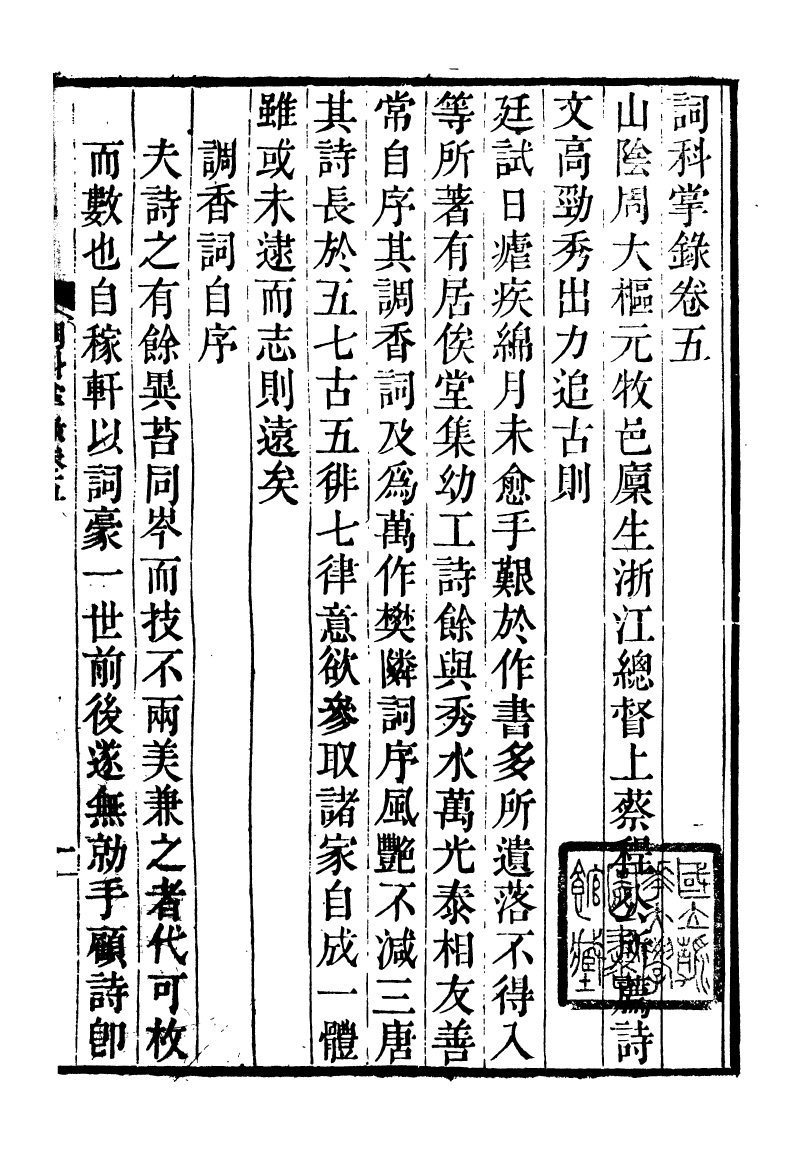 詞科掌錄卷五
山陰周大樞元牧邑廩生浙江總督上蔡程公所薦詩
文高勁秀出力追古則
廷試日瘧疾綿月未愈手艱於作書多所遺落不得入
等所著有居俟堂集幼工詩餘與秀水萬光泰相友善
常自序其調香詞及爲萬作樊隣詞序風艷不減三唐
其詩長於五七古五徘七律意欲參取諸家自成一體
雖或未逮而志則遠矣
調香詞自序
夫詩之有餘異苔同岑而技不兩美兼之者代可枚
而數也自稼軒以詞豪一世前後遂無勍手顧詩卽
詞科掌錄卷五
一